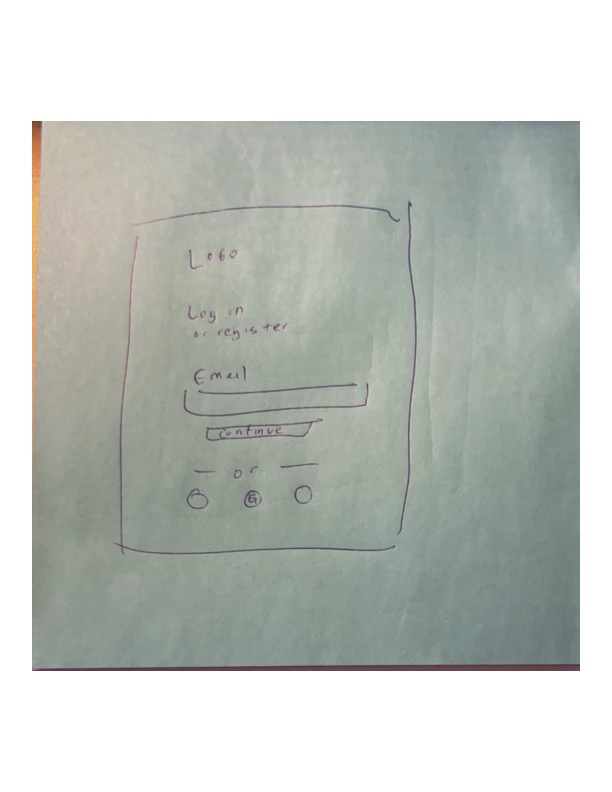 Logo
Log in
or register
Email
Continue
or
G